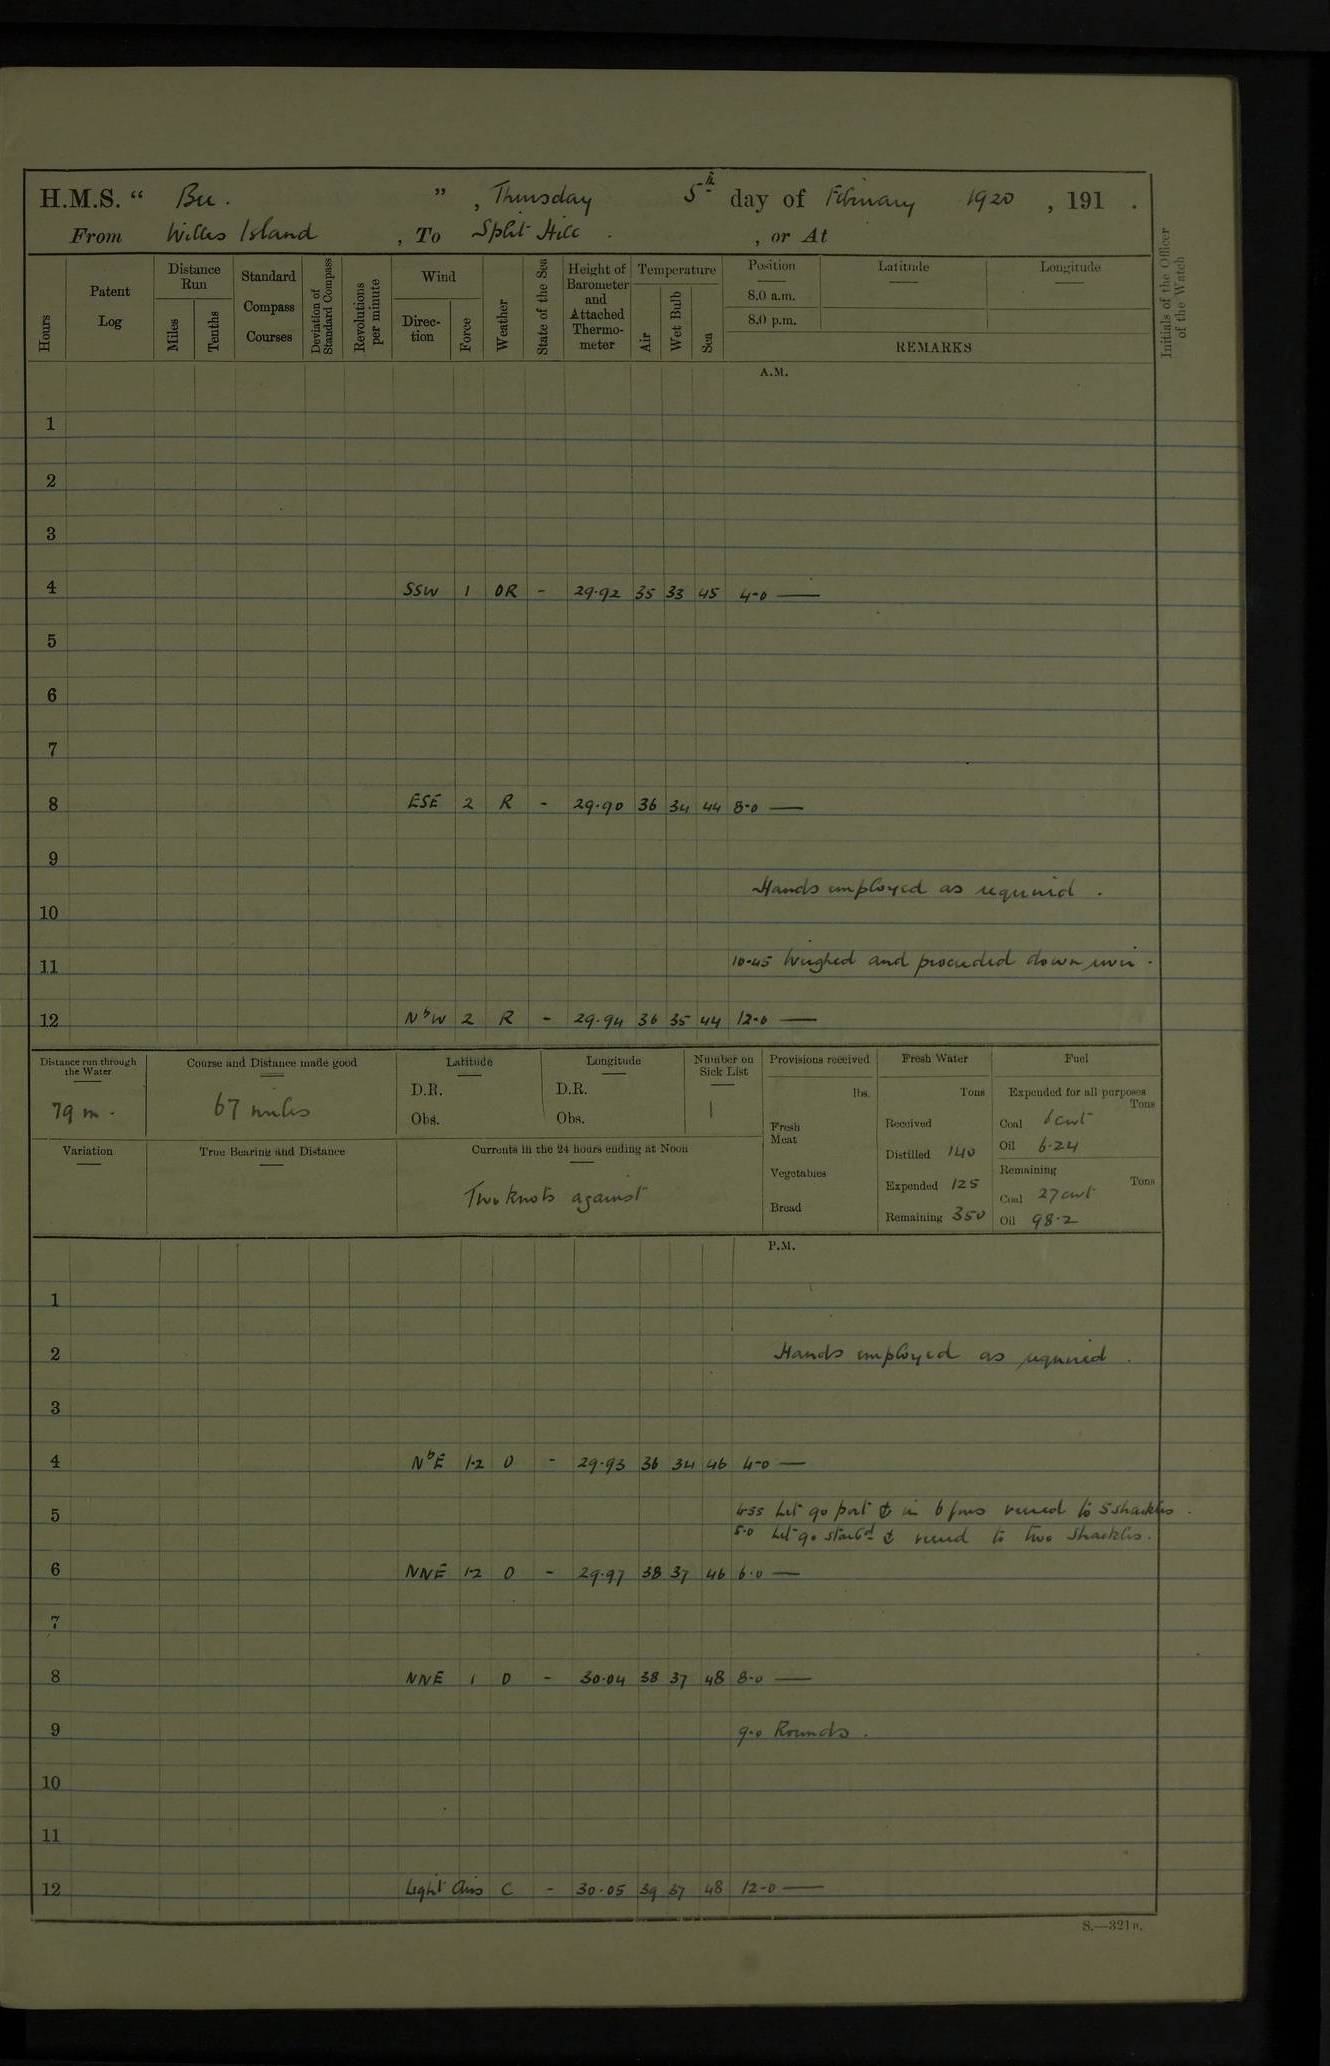 H.M.S. “ Bee. ” , Thursday 5th day of February 1920 , 191 .
From Willes Island , To Split Hill . , or At
Hours
Patent Log
Distance Run
Miles
Tenths
Standard Compass Courses
Deviation of Standard Compass
Revolutions per minute
Wind
Direction
Force
Weather
State of the Sea
Height of Barometer and Attached Thermometer
Temperature
Air
Wet Bulb
Sea
Position
8.0 a.m.
8.0 p.m.
Latitude
Longitude
REMARKS
Initials of the Officer of the Watch
A.M.
1
2
3
4 SSW 1 OR - 29.92 35 33 45 4-0 —
5
6
7
8 ESE 2 R - 29.90 36 34 44 8-0 —
9
Hands employed as required .
10
11 10-45 Weighed and proceeded down river .
12 NbW 2 R - 29.94 36 35 44 12-0 —
Distance run through the Water
79 m .
Course and Distance made good
67 miles
Latitude
D.R.
Obs.
Longitude
D.R.
Obs.
Number on Sick List
1
Provisions received
lbs.
Fresh Meat
Vegetables
Bread
Fresh Water
Tons
Received
Distilled 140
Expended 125
Remaining 350
Fuel
Expended for all purposes
Tons
Coal 6 cwt
Oil 6.24
Remaining
Tons
Coal 27 cwt
Oil 98.2
Variation
True Bearing and Distance
Currents in the 24 hours ending at Noon
Two knots against
P.M.
1
2 Hands employed as required .
3
4 NbE 1-2 O - 29.93 36 34 46 4-0 —
5 4-55 Let go port ⚓ in 6 fms veered to 5 shackles .
5-0 Let go starbd ⚓ veered to two shackles .
6 NNE 1-2 O - 29.97 38 37 46 6.0 —
7
8 NNE 1 O - 30.04 38 37 48 8-0 —
9 9-0 Rounds .
10
11
12 Light Airs C - 30.05 39 37 48 12-0 —
S.—321B.